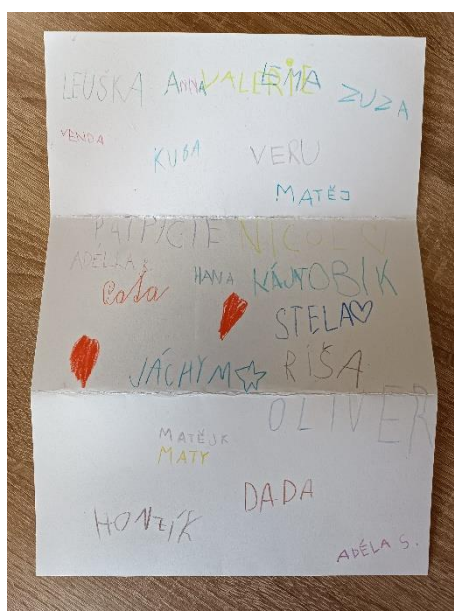 LEUŠKA ANNA VALERIE EMA
ZUZA
VENDA
KUBA VERU
MATĚJ
PATRICIE NICOLN
ADÉLKA
HANA KÁJA TOBIK
STELA
JÁCHYM RÍŠA
OLIVER
MATĚJK
MATY
DADA
HONZÍK
ADÉLA S.